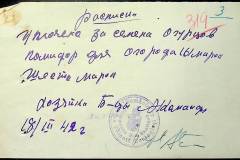 3
319
Расписка
Уплочена за семена огурцов
помидор для огорода
Шесть марок
Хозяйка Б-цы
19/III 42 г